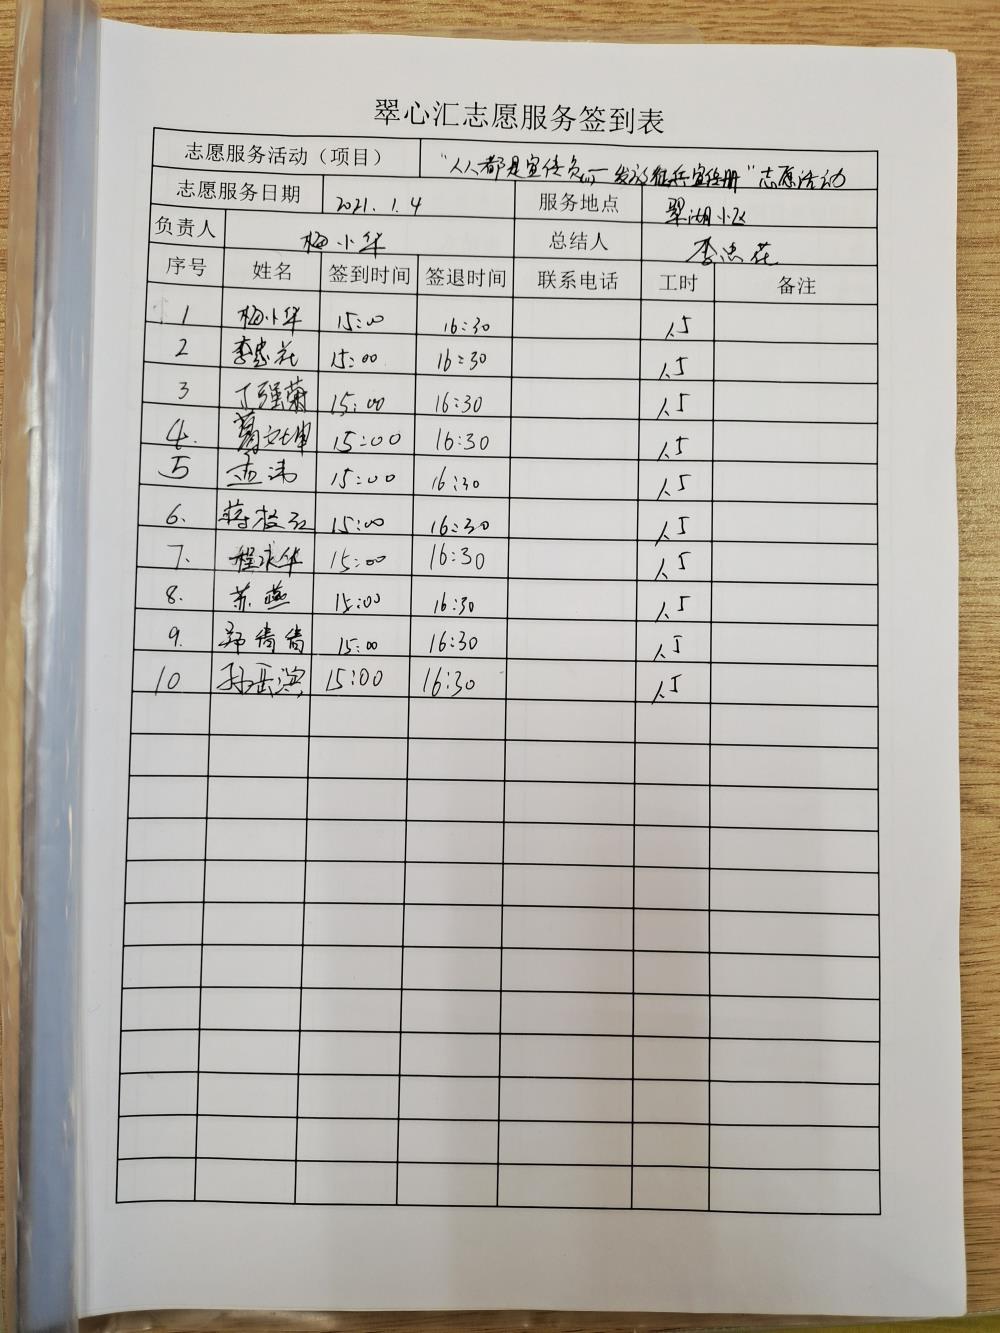 翠心汇志愿服务签到表
志愿服务活动（项目） "人人都是宣传员——发放征兵宣传册"志愿活动
志愿服务日期 2021.1.4 服务地点 翠湖小区
负责人 梅小华 总结人 李忠花
序号 姓名 签到时间 签退时间 联系电话 工时 备注
1 梅小华 15:00 16:30 1.5
2 李忠花 15:00 16:30 1.5
3 丁强菊 15:00 16:30 1.5
4. 葛文坤 15:00 16:30 1.5
5 孟涛 15:00 16:30 1.5
6. 蒋 15:00 16:30 1.5
7. 程永华 15:00 16:30 1.5
8. 苏燕 15:00 16:30 1.5
9. 郑倩倩 15:00 16:30 1.5
10 孙岳滨 15:00 16:30 1.5